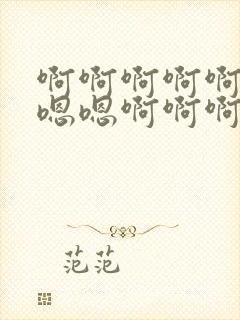 啊啊啊啊啊
嗯嗯啊啊啊
范范